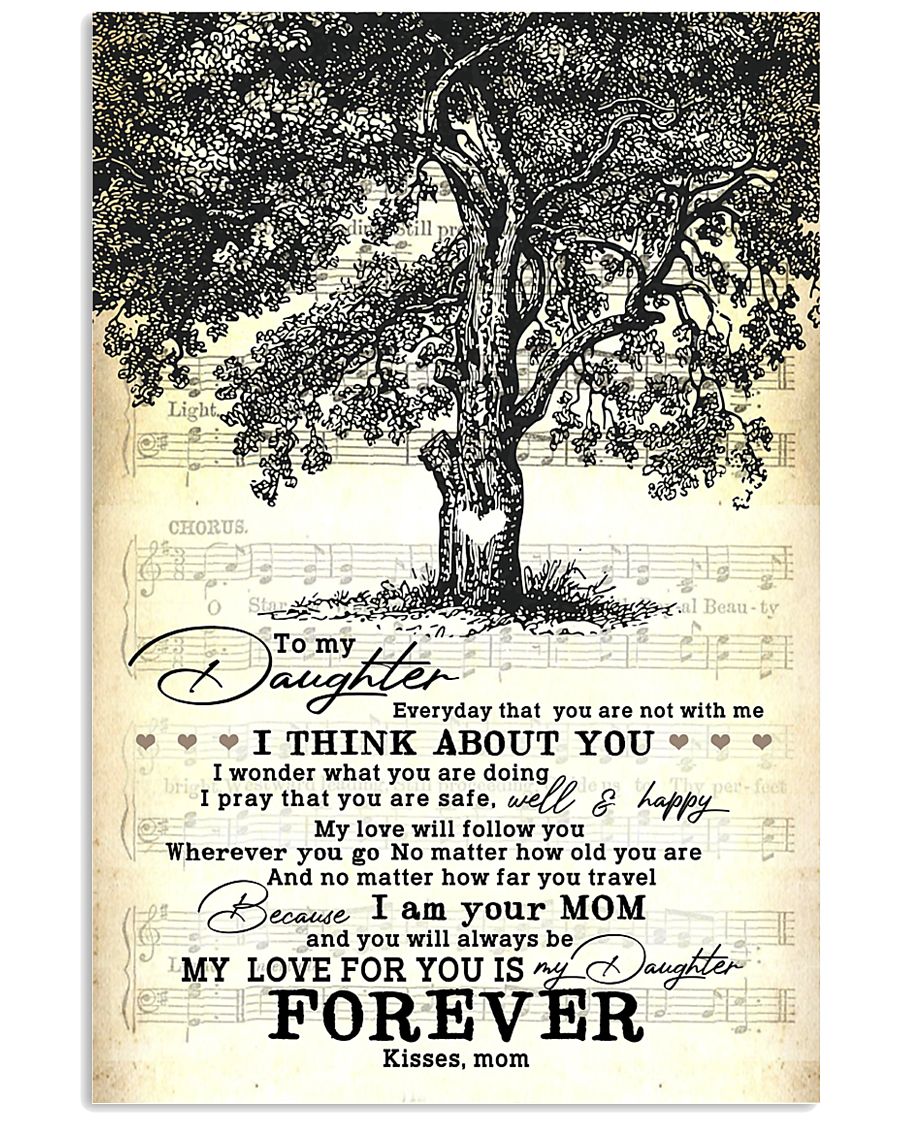 Still
Light.
CHORUS.
O Star Beau-ty
To my
Daughter
Everyday that you are not with me
I THINK ABOUT YOU
I wonder what you are doing
bright, Westward leading, Still proceeding, Thy per-fect
I pray that you are safe, well & happy
My love will follow you
Wherever you go No matter how old you are
And no matter how far you travel
Because I am your MOM
and you will always be
MY LOVE FOR YOU IS my Daughter
FOREVER
Kisses, mom